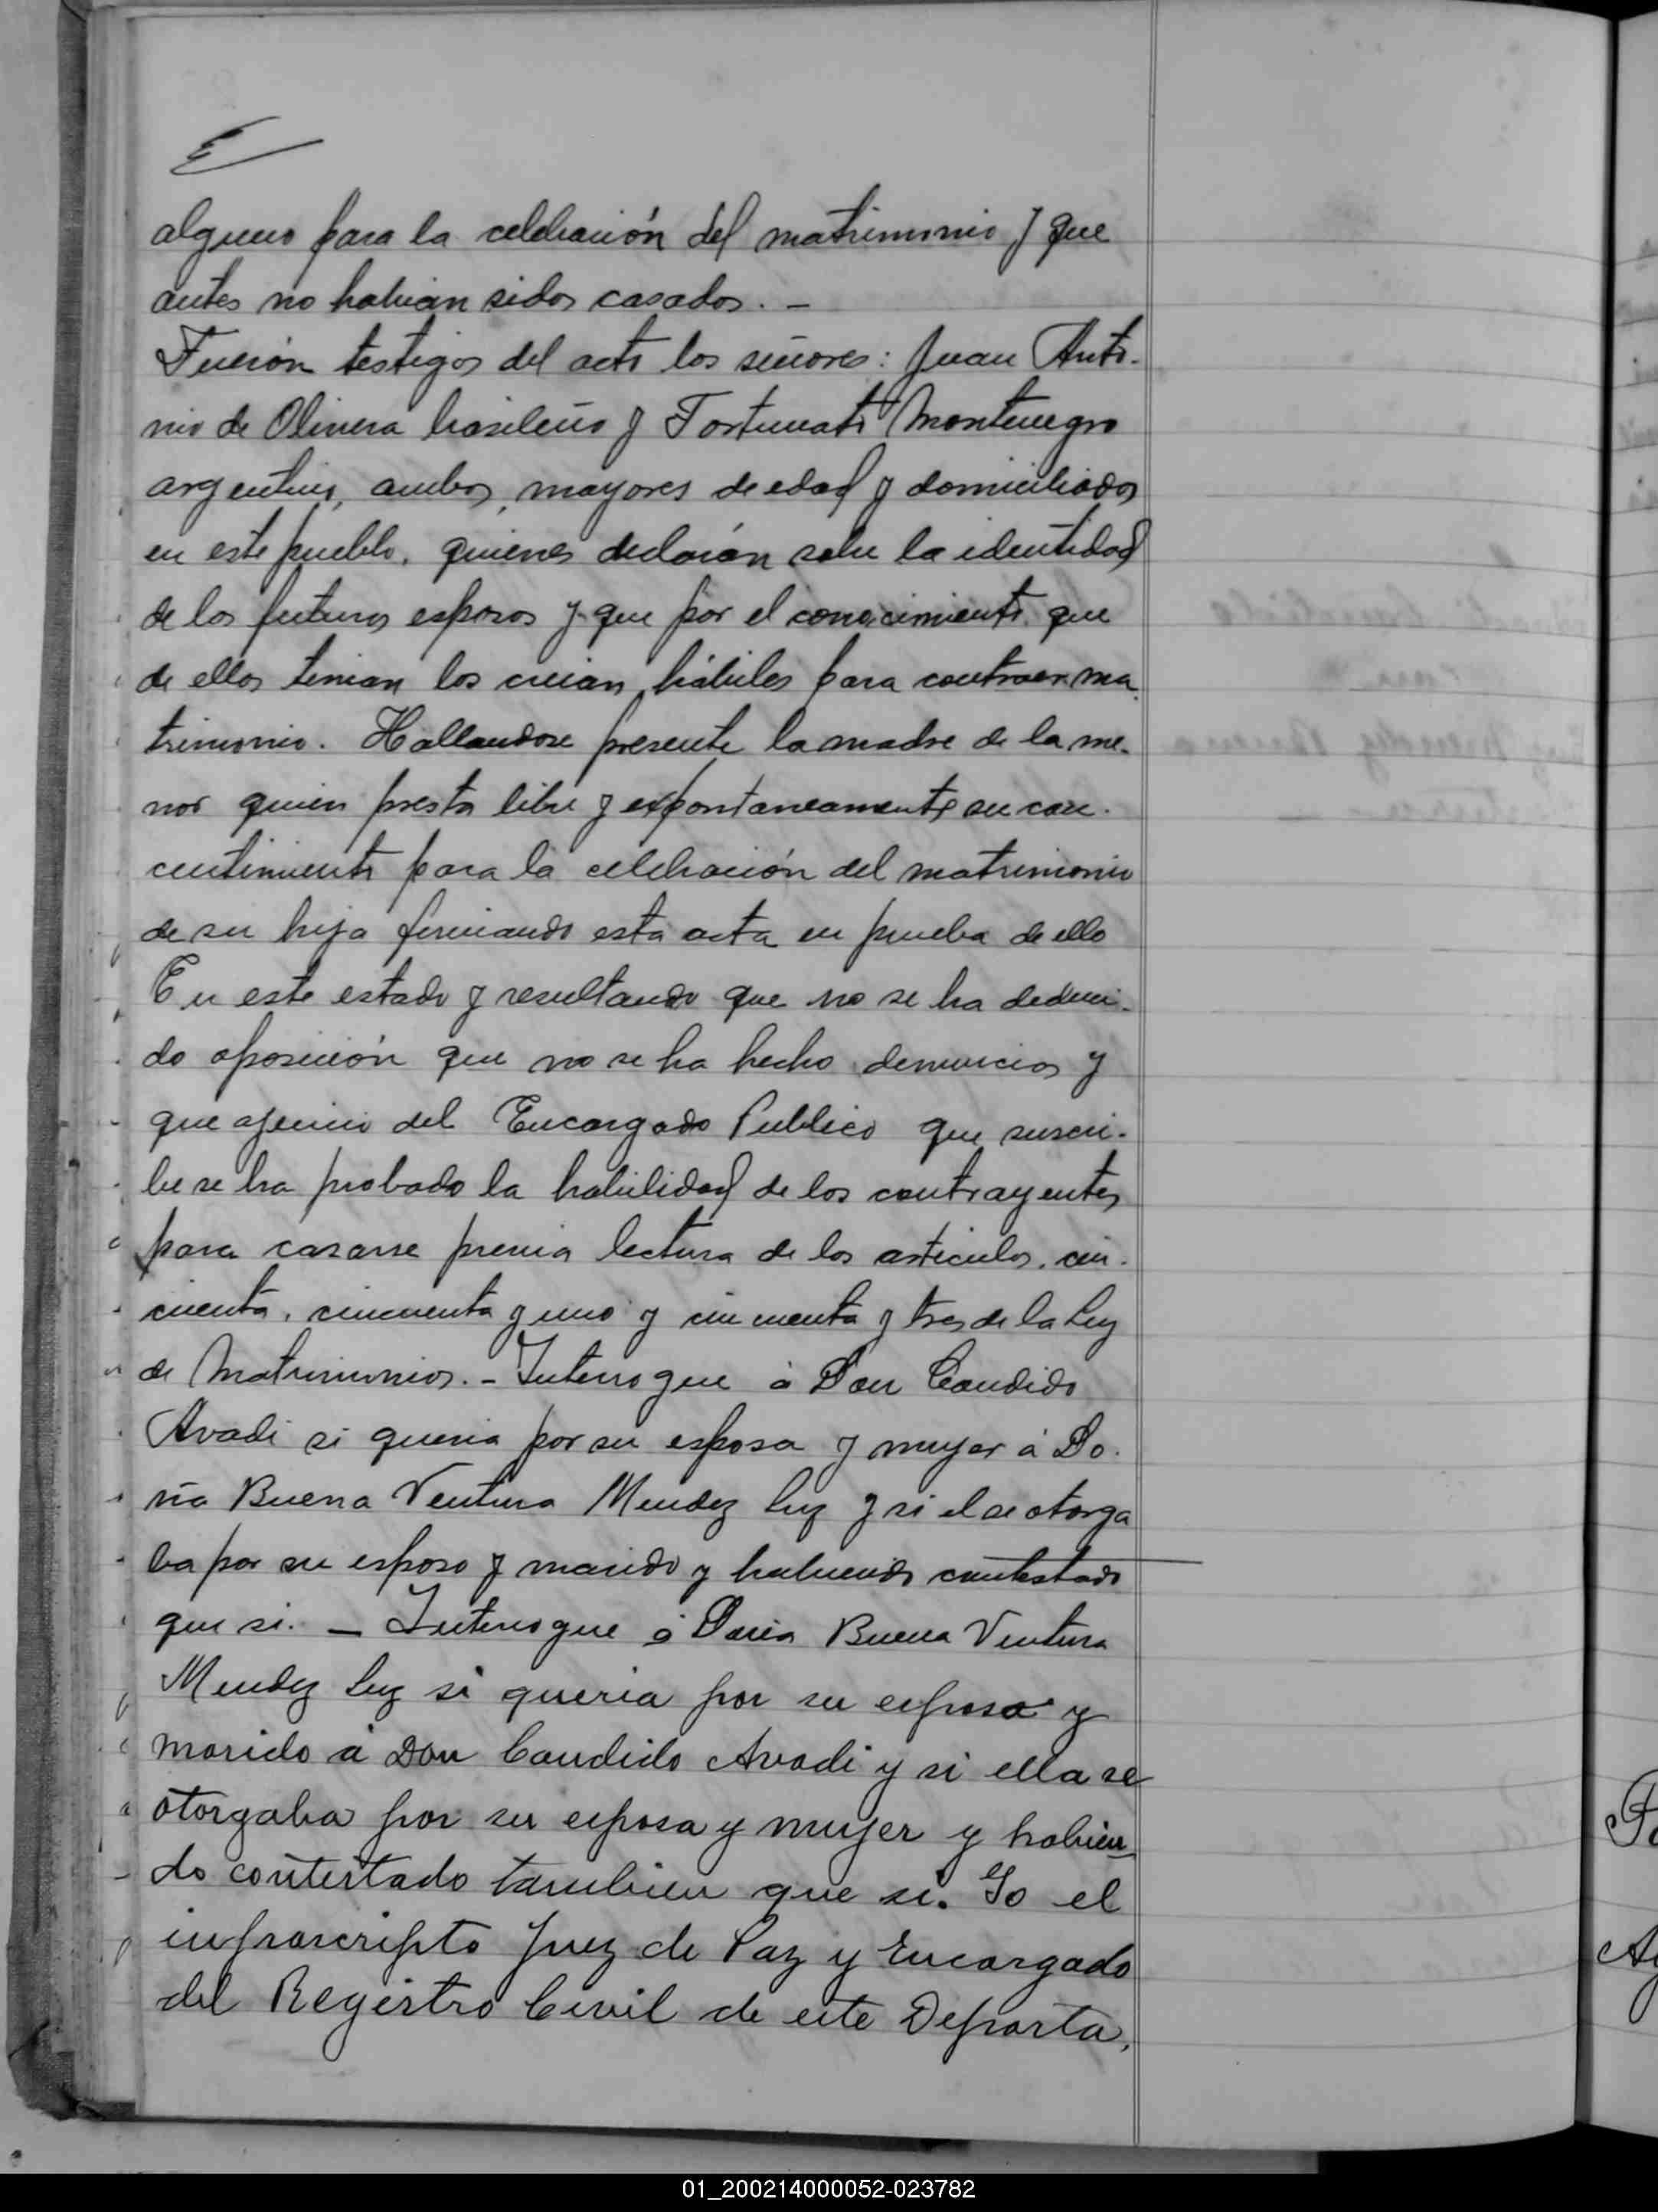 alguno para la celebración del matrimonio y que
antes no habian sidos casados. –
Fuerón testigos del acto los señores: Juan Anto-
nio de Olivera brasileño y Fortunato Montenegro
argentino, ambos, mayores de edad y domiciliados
en este pueblo, quienes declarán sobre la identidad
de los futuros esposos y que por el conocimiento que
de ellos tenian los creian hábiles para contraer ma-
trimonio. Hallandose presente la madre de la me-
nor quien presta libre y expontaneamente su con-
centimiento para la celebración del matrimonio
de su hija firmando esta acta en prueba de ello
En este estado y resultando que no se ha deduci-
do oposición que no se ha hecho denuncias y
que ajuicio del Encargado Publico que suscri-
be se ha probado la habilidad de los contrayentes
para casarse previa lectura de los articulos, cin-
cuenta, cincuenta y uno y cincuenta y tres de la Ley
de Matrimonios. – Interrogue á Don Candido
Avadi si queria por su esposa y mujer á Do-
ña Buena Ventura Mendez Luz y si el se otorga
ba por su esposo y marido y habiendo contestado
que si. – Interrogue á Doña Buena Ventura
Mendez Luz si queria por su esposo y
marido á Don Candido Avadi y si ella se
otorgaba por su esposa y mujer y habien-
do contestado tambien que si. Yo el
infrascripto Juez de Paz y Encargado
del Registro Civil de este Departa-
01_200214000052-023782